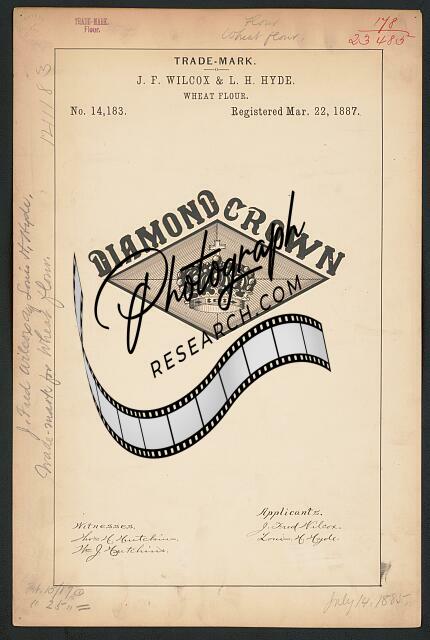 TRADE-MARK.
Flour.
Flour
Wheat flour.
178
23483
TRADE-MARK.
J. F. WILCOX & L. H. HYDE.
WHEAT FLOUR.
No. 14,183.
Registered Mar. 22, 1887.
DIAMOND CROWN
Photograph
RESEARCH.COM
J. Fred Wilcox & Louis H. Hyde,
Trade-mark for Wheat flour.
Witnesses.
Thos H. Hutchins
Wm J Hutchins.
Applicants.
J. Fred Wilcox.
Louis H Hyde.
July 14, 1885